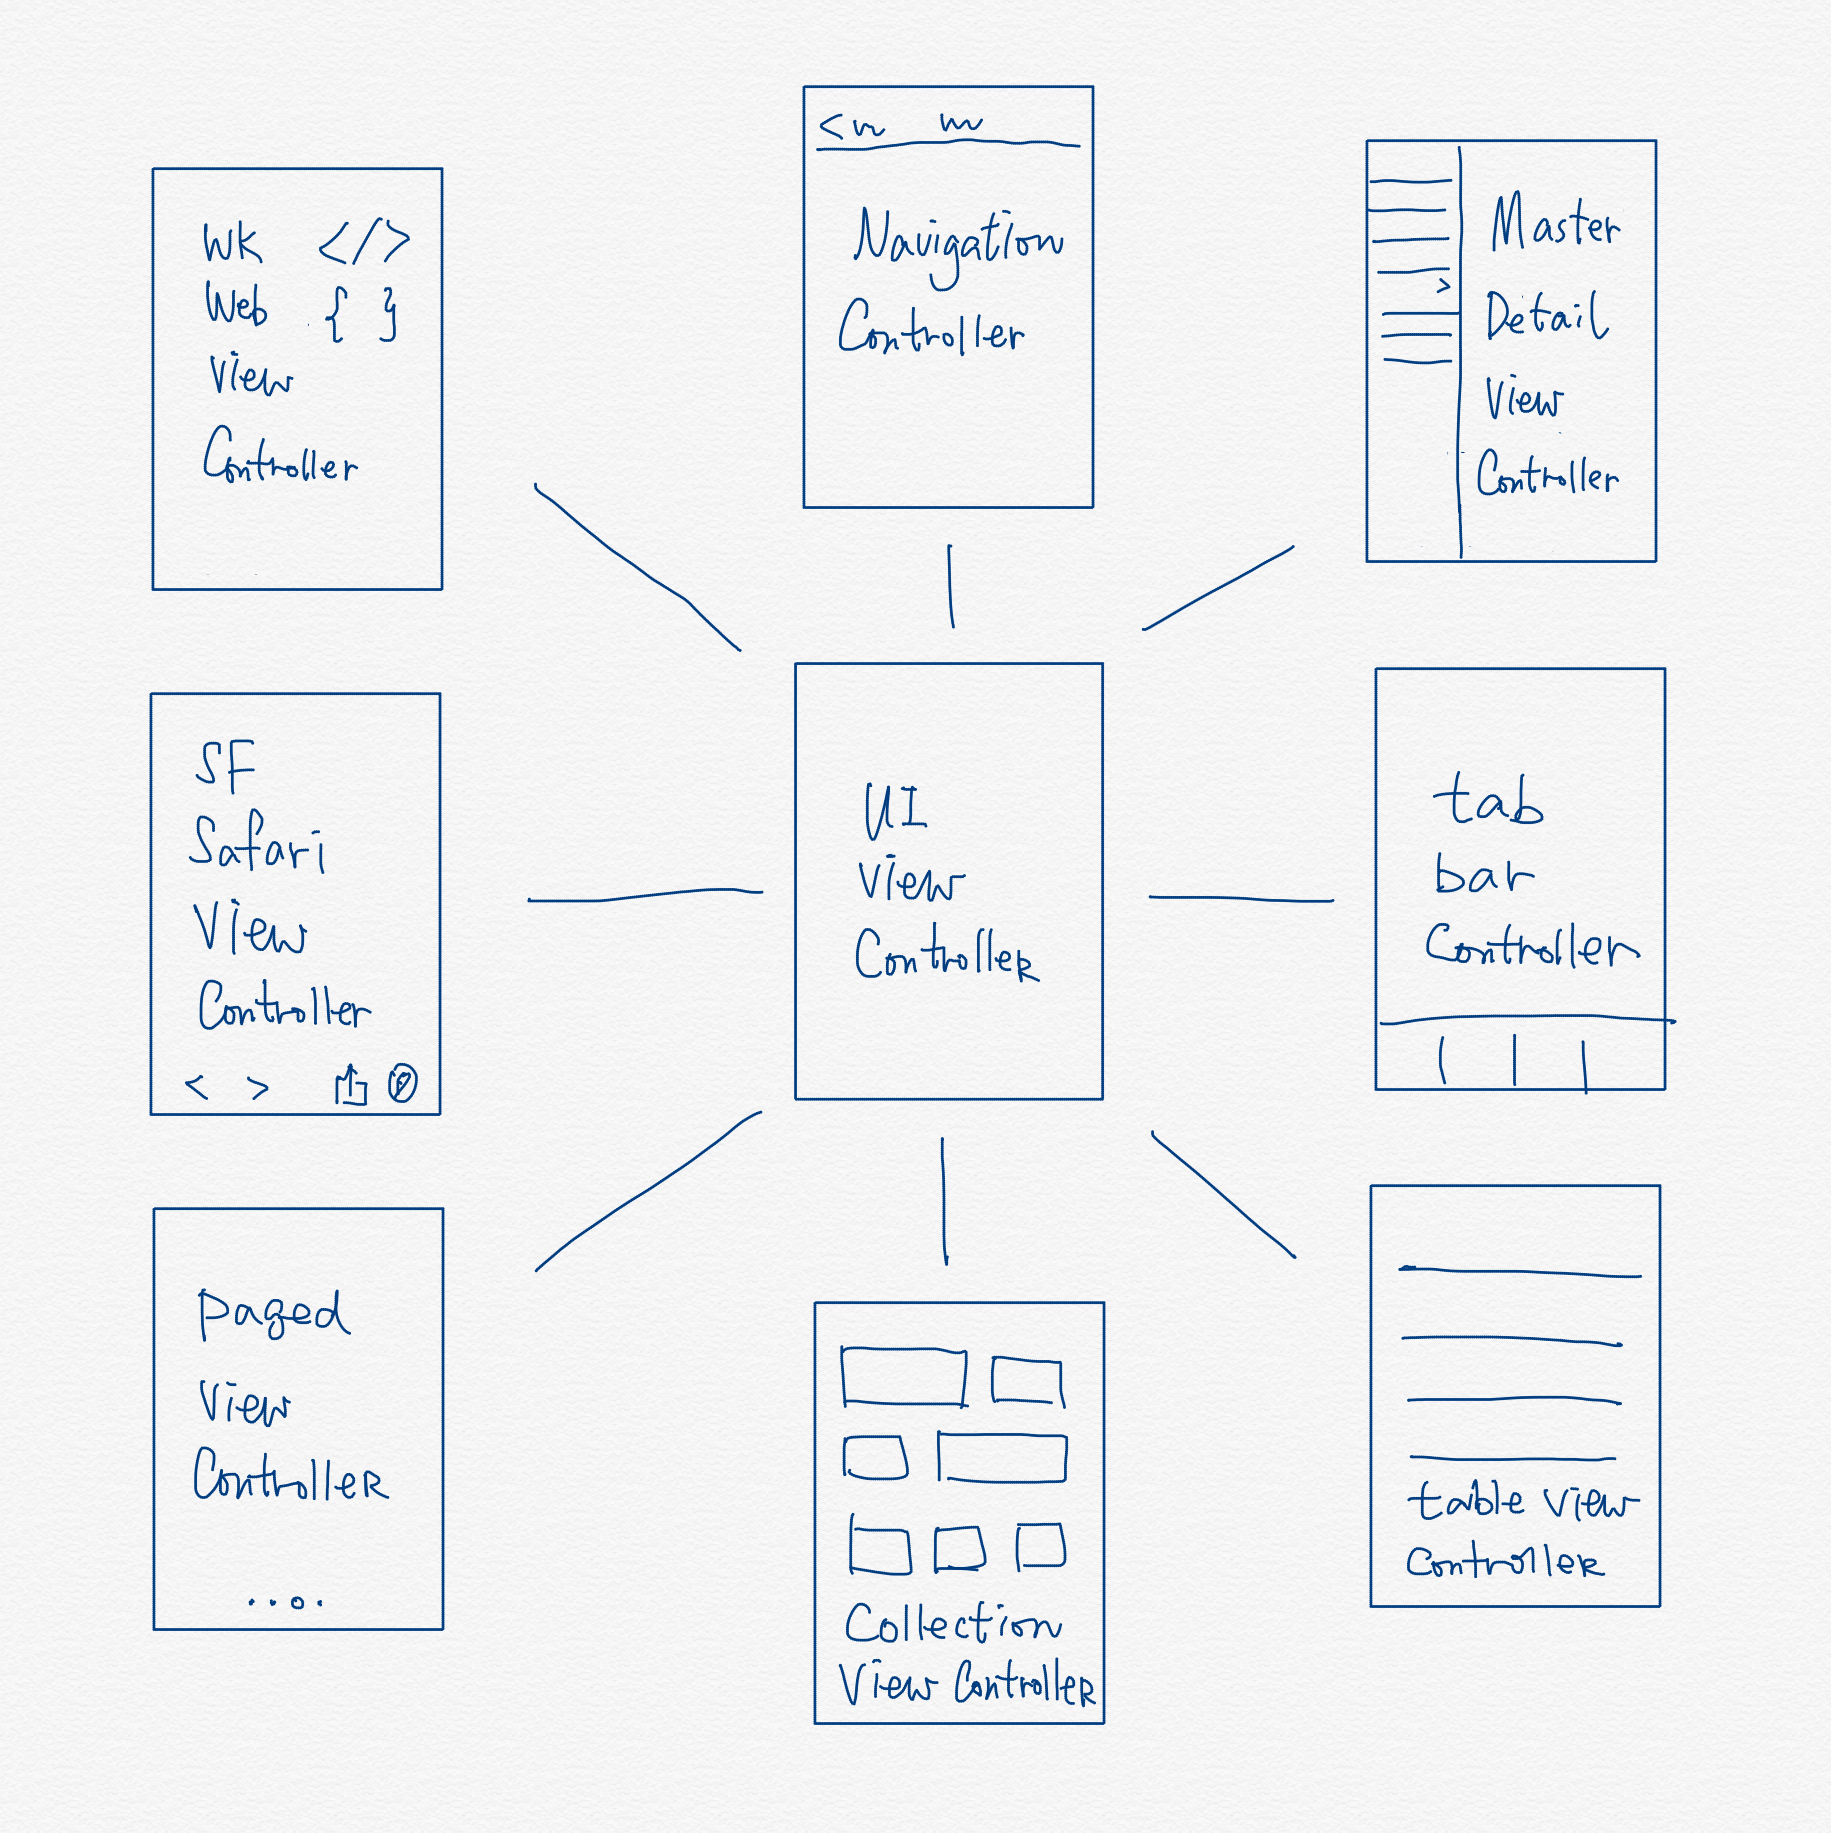 Navigation
Controller
WK </>
Web { }
View
Controller
Master
Detail
View
Controller
SF
Safari
View
Controller
< >
UI
View
Controller
tab
bar
Controller
Paged
View
Controller
Collection
View Controller
table view
controller